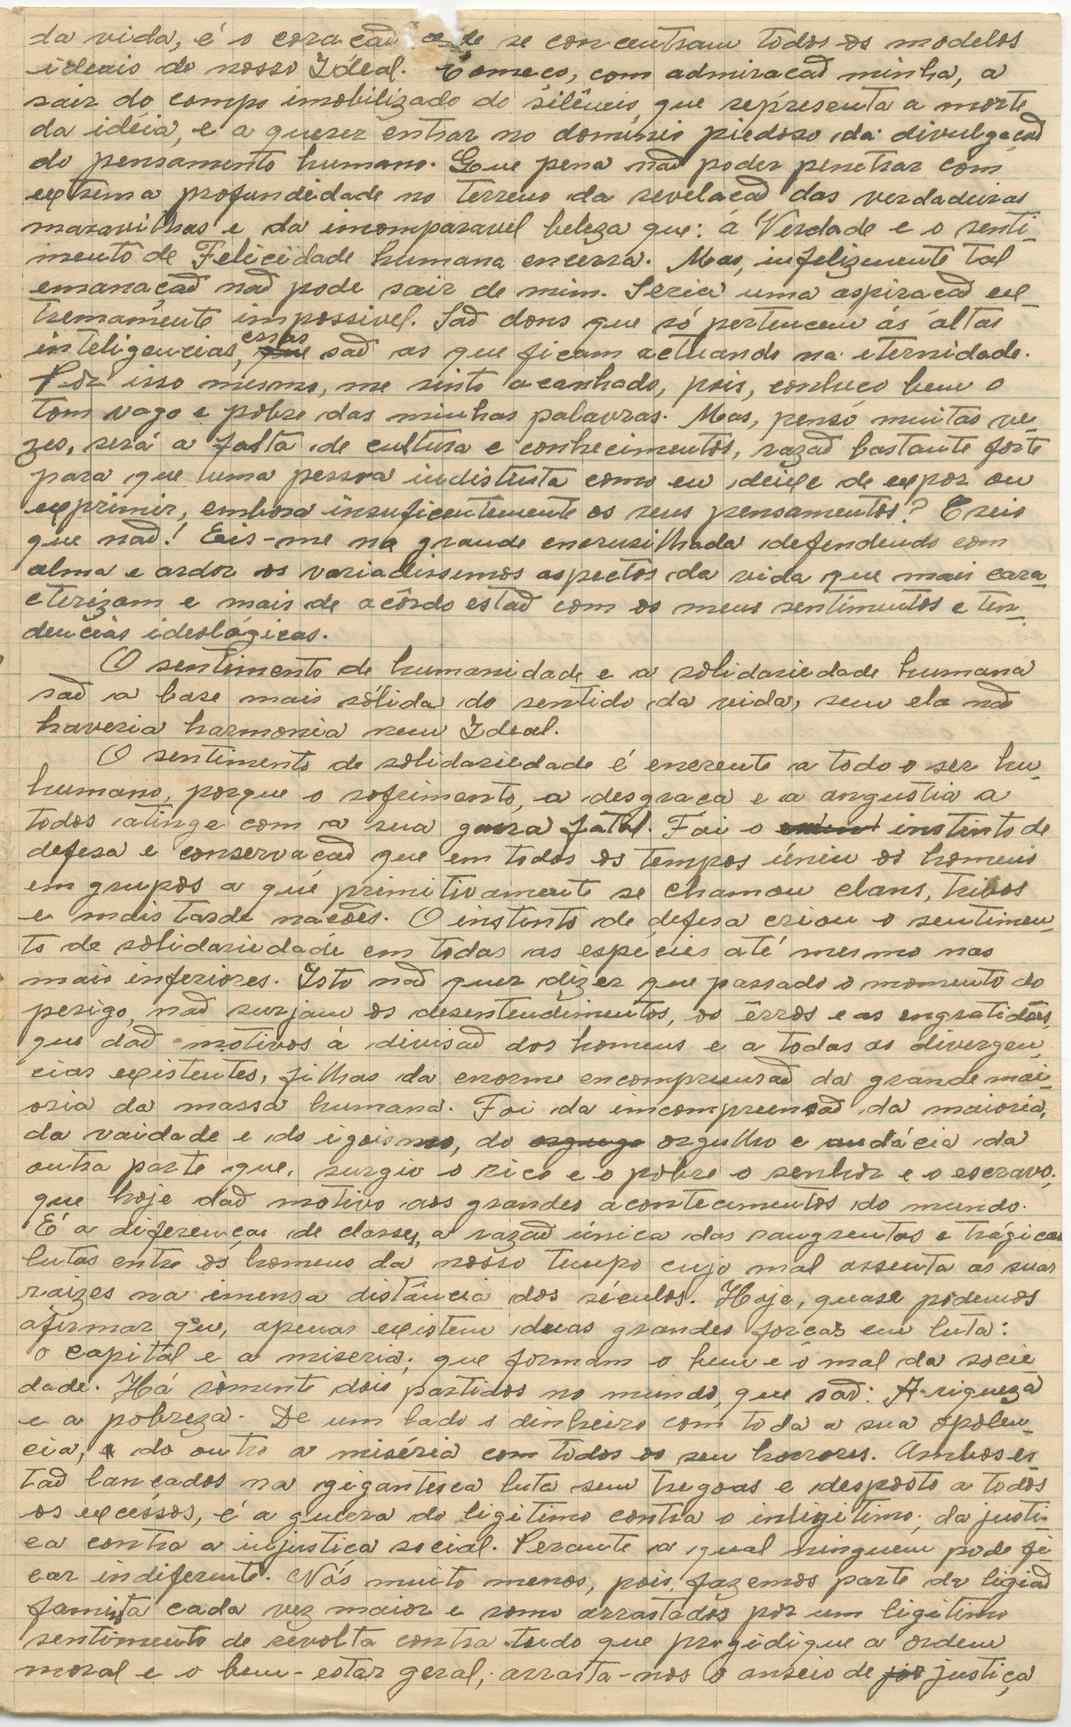 da vida, é o coração onde se concentram todos os modelos
ideais do nosso Idéal. Começo, com admiracaõ minha, a
sair do campo imobilizado do silêncio, que representa a morte
da idéia, e a querer entrar no dominio piedoso da divulgaçaõ
do pensamento humano. Que pena naõ poder penetrar com
extrema profundidade no terreno da revelacaõ das verdadeiras
maravilhas e da incomparavel beleza que: a Verdade e o senti-
mento de Felicidade humana encerra. Mas, infelizmente tal
emanaçaõ naõ pode sair de mim. Seria uma aspiracaõ ex-
tremamente impossivel. Saõ dons que só pertencem ás altas
inteligencias, essas saõ as que ficam actuando na eternidade.
Por isso mesmo, me sinto acanhado, pois, conheço bem o
tom vago e pobre das minhas palavras. Mas, penso muitas ve-
zes, será a falta de cultura e conhecimentos, razaõ bastante forte
para que uma pessoa indistinta como eu deixe de expor ou
exprimir, embora insuficentemente os seus pensamentos? Creio
que naõ! Eis-me na grande encrusilhada defendendo com
alma e ardor os variadissemos aspectos da vida que mais cara-
cterizam e mais de acôrdo estaõ com os meus sentimentos e ten-
dencias ideológicas.
O sentimento de humanidade e a solidariedade humana
saõ a base mais sólida do sentido da vida, sem ela naõ
haveria harmonia nem Ideal.
O sentimento de solidariedade é enerente a todo o ser hu-
humano, porque o sofrimento, a desgraca e a angustia a
todos atinge com a sua garra fatal. Foi o instinto de
defesa e conservacaõ que em todos os tempos úniu os homens
em grupos a que primitivamente se chamou clans, tribos
e mais tarde nações. O instinto de defesa criou o sentimen-
to de solidariedade em todas as especies até mesmo nas
mais inferiores. Isto naõ quer dizer que passado o momento do
perigo, naõ surjam os desentendimentos, os êrros e as engratidões,
que daõ motivos á divisaõ dos homens e a todas as divergen-
cias existentes, filhas da enorme encompreensaõ da grande mai-
oria da massa humana. Foi da imcompreensaõ da maioria,
da vaidade e do igoismo, do orgulho e audácia da
outra parte que, surgio o rico e o pobre o senhor e o escravo,
que hoje daõ motivo aos grandes acontecimentos do mundo.
É a diferencas de classes, a razaõ única das sangrentas e trágicas
lutas entre os homens da nosso tempo cujo mal assenta as suas
raizes na imensa distância dos séculos. Hoje, quase podemos
afirmar que, apenas existem duas grandes forcas em luta:
o capital e a miseria; que formam o bem e o mal da socie
dade. Há sómente dois partidos no mundo, que saõ: A riqueza
e a pobreza. De um lado o dinheiro com toda a sua opolen-
cia, do outro a miséria com todos os seu horrores. Ambos es-
taõ lancados na gigantesca luta sem tregoas e desposto a todos
os excessos, é a guerra do ligitimo contra o inligitimo; da justi-
ca contra a injustica social. Perante a qual ninguem pode fi
car indiferente. Nós muito menos, pois, fazemos parte da ligiaõ
faminta cada vez maior e somo arrastados por um ligitimo
sentimento de revolta contra tudo que progidique a ordem
moral e o bem-estar geral; arrasta-nos o anseio de justiça